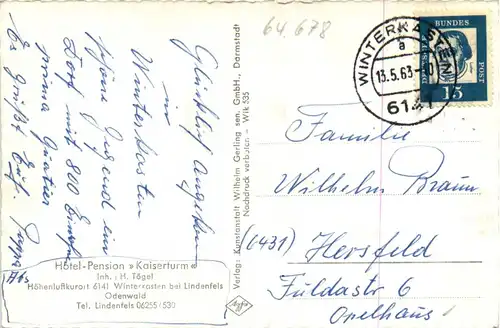 64.678
Glücklich angekommen
in
Winterkasten
schöne Gegend ein
Dorf mit 800 Einw.
prima Quatier
Es grüßt Euf. Pappa
Hotel-Pension »Kaiserturm«
Inh.: H. Tögel
Höhenluftkurort 6141 Winterkasten bei Lindenfels
Odenwald
Tel. Lindenfels 06255/530
Verlag: Kunstanstalt Wilhelm Gerling sen. GmbH., Darmstadt
Nachdruck verboten – Wlk 535
WINTERKASTEN
a
13.5.63
6141
DEUTSCHE
BUNDES
POST
15
Familie
Wilhelm Braun
(6431) Hersfeld
Fuldastr 6
Opelhaus